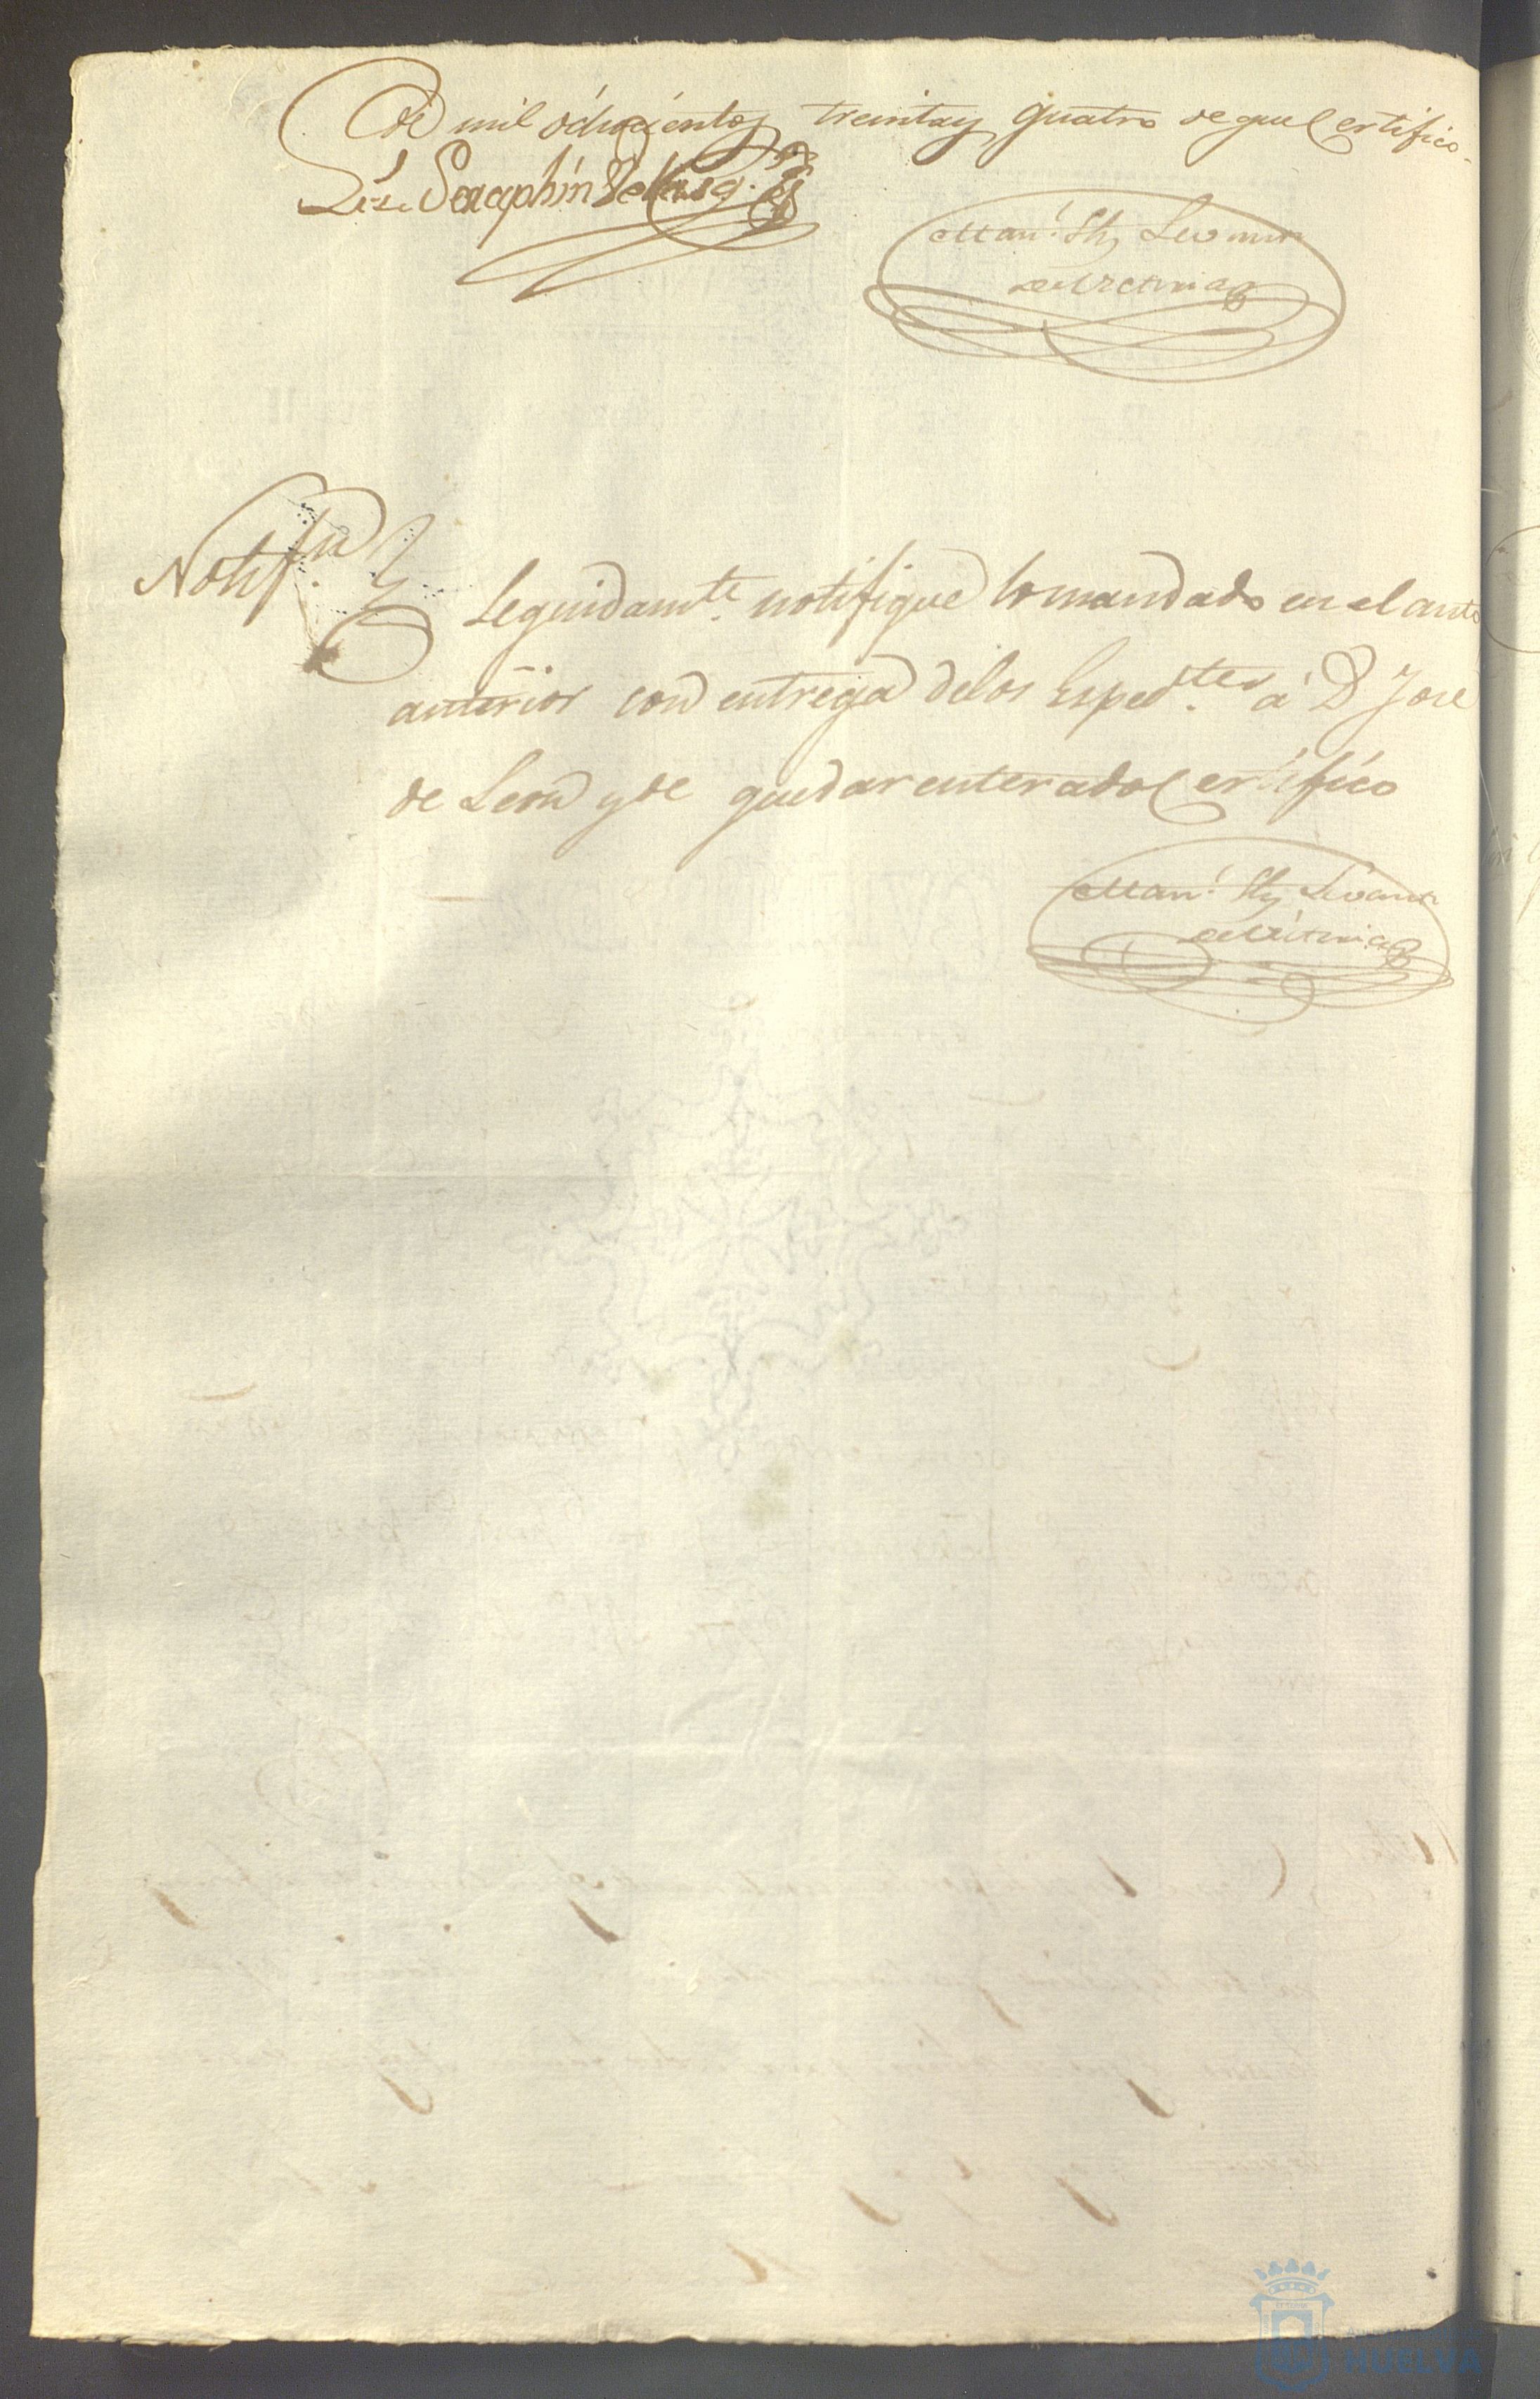 de mil ochocientos treinta y quatro de que Certifico.
Seraphin
Man.l
Notif.n
Seguidam.te notifiqué lo mandado en el auto
anterior con entrega de los Exped.tes á D José
de León y de quedar enterado Certifico
Man.l
HUELVA